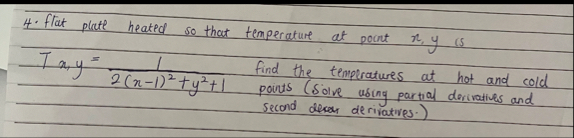 4. flat plate heated so that temperature at point x, y is
T x,y = 1 / 2(x-1)² + y² + 1 find the temperatures at hot and cold
points (solve using partial derivatives and
second derivatives.)